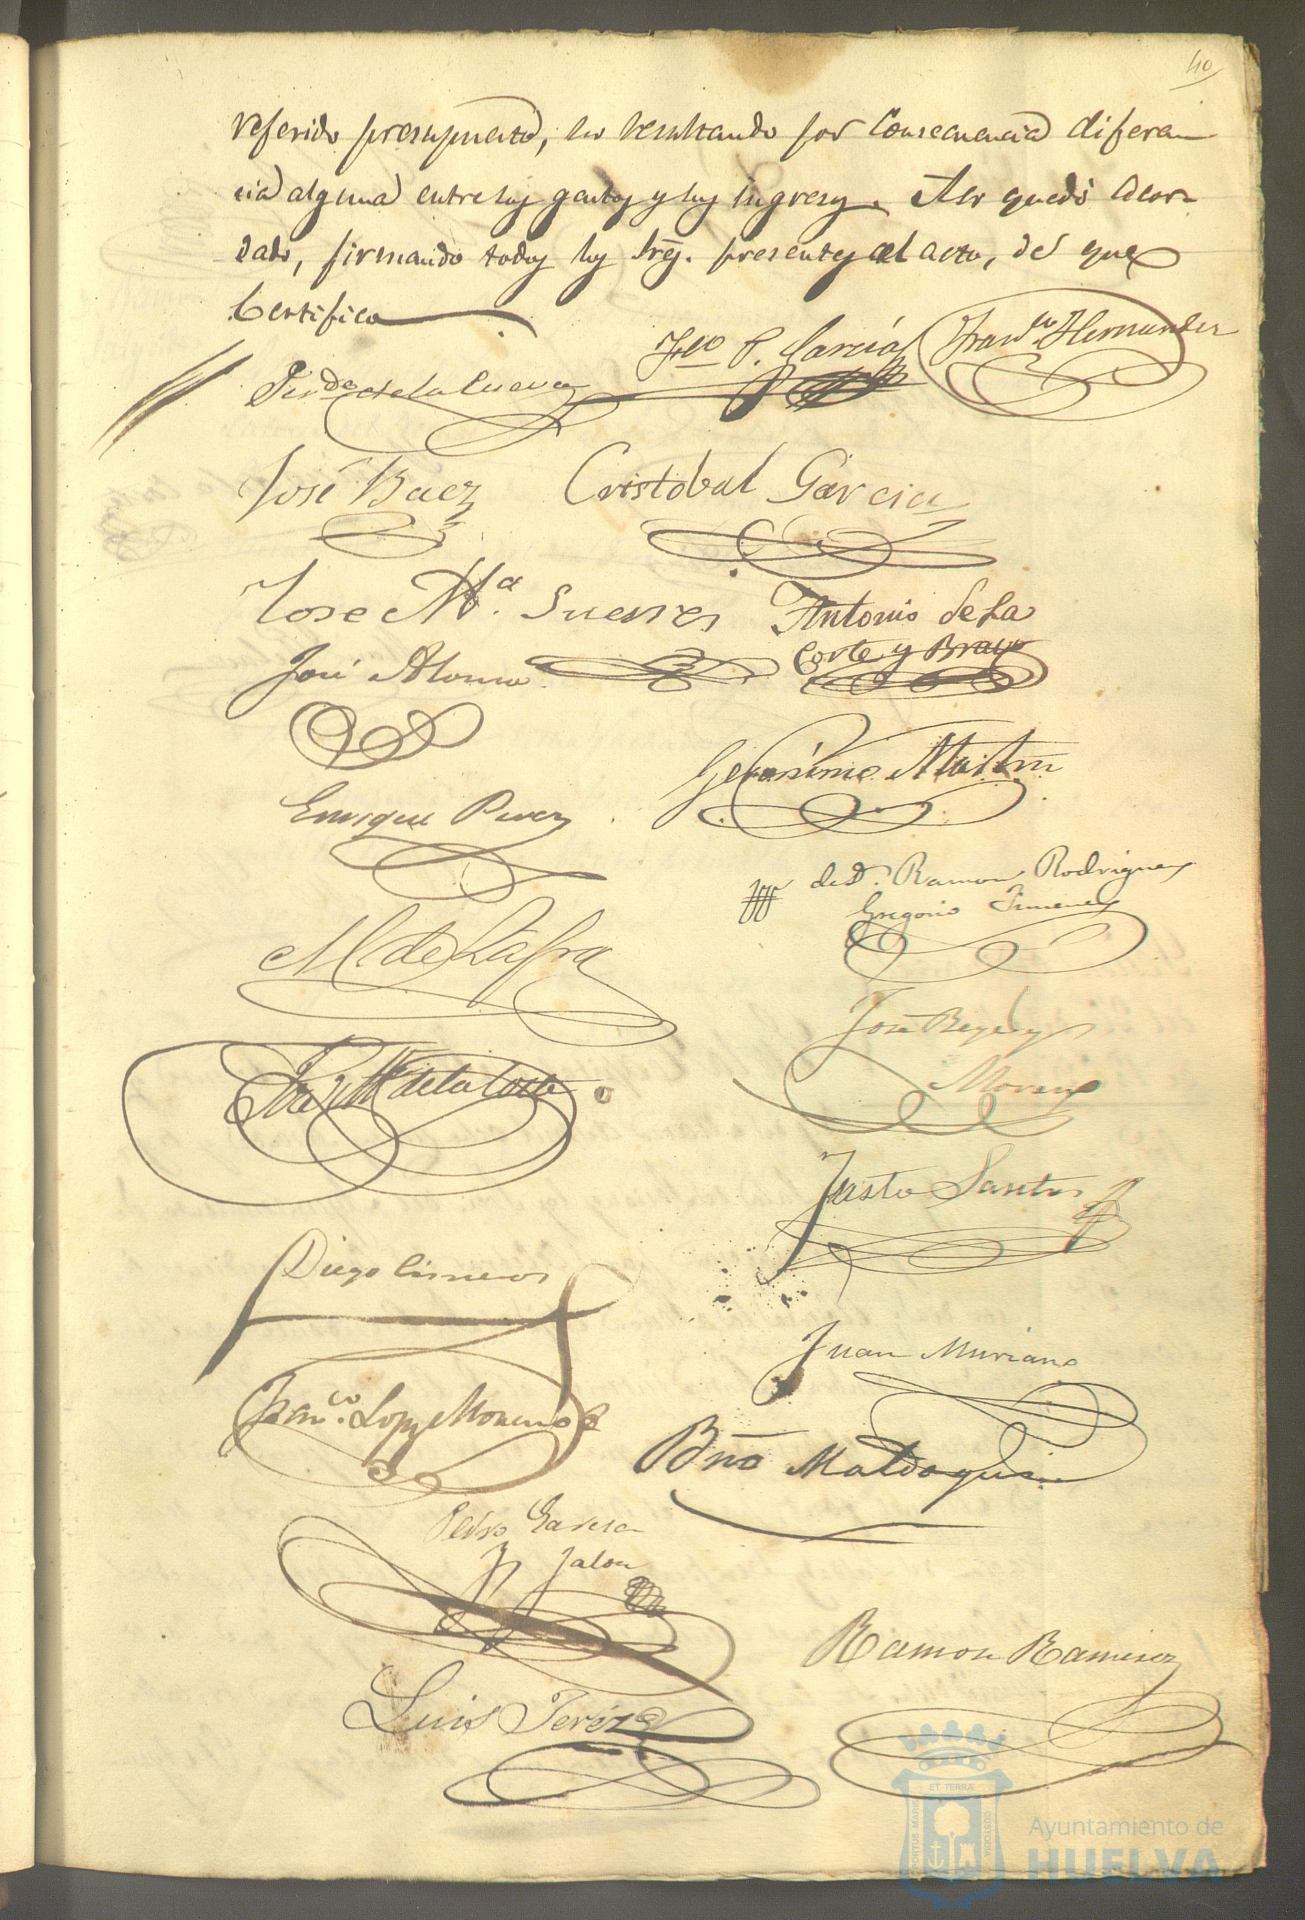 40
referido presupuesto, no resultando por consecuencia diferen
cia alguna entre los gastos y los ingresos. Así quedó acor
dado, firmando todos los Sres. presentes al acto, de que
Certifico
Fco P. García
Franco Hernandez
de la Cueva
José Baez
Cristobal Garcia
Jose Ma. Suerres
Antonio de La
Corte y Bravo
José Alonso
Geronimo Martin
Enrique Perez
de D. Ramon Rodriguez
Gregorio Jimenez
M de Lafra
José
Moreno
de la Corte
Justo Santos
Diego Cisneros
Juan Muriano
Franco. Lopez Moreno
Bno Maldoqui
Pedro Garcia
Jalon
Ramon Ramirez
Luis Jeréz
PORTUS MARIS ET TERRÆ CUSTODIA
Ayuntamiento de
HUELVA